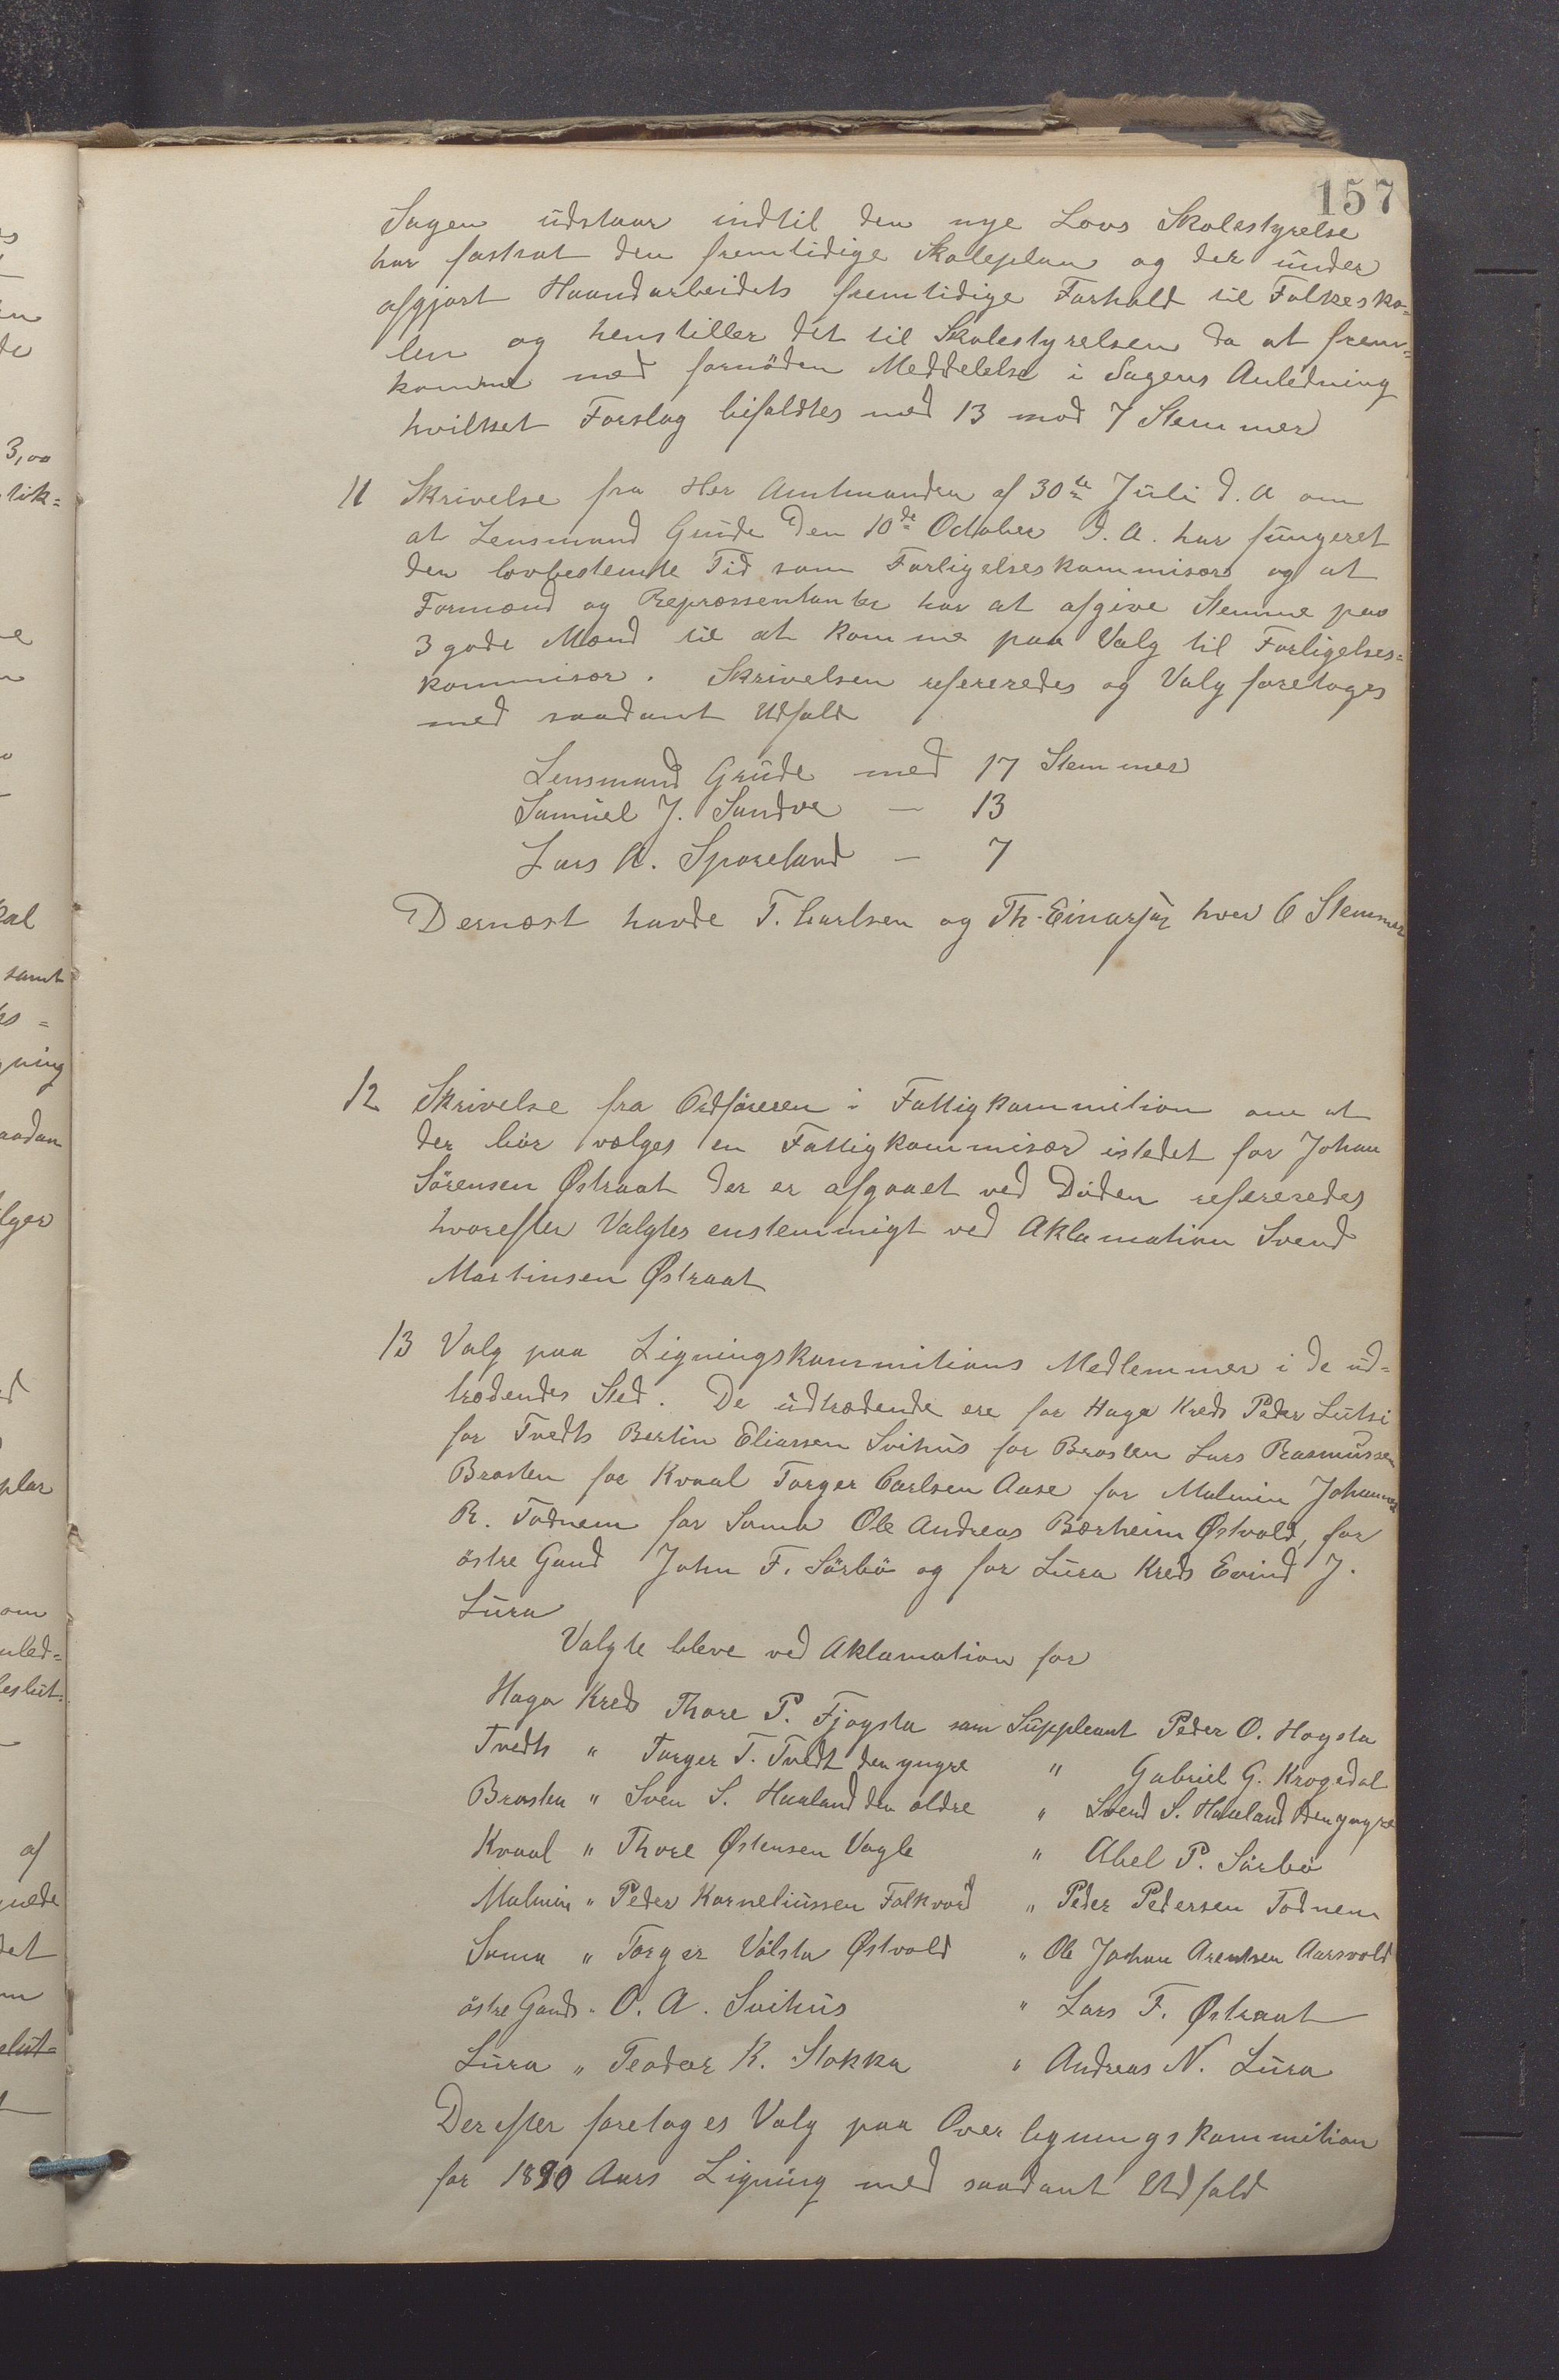 157
Sagen udstaar indtil den nye Lovs Skolestyrelse
har fastsat den fremtidige Skoleplan og der under
afgjort Haandarbeidets fremtidige Forhold til Folkesko=
len og henstiller det til Skolestyrelsen da at frem=
komme med fornöden Meddelelse i Sagens Anledning
hvilket Forslag bifaldtes med 13 mod 7 Stemmer
11 Skrivelse fra Her Amtmanden af 30te Juli d. A om
at Lensmand Grude den 10de October d. A. har fungeret
den lovbestemte Tid som Forligelseskommisær og at
Formænd og Repræssentanter har at afgive Stemme paa
3 gode Mænd til at komme paa Valg til Forligelses=
kommisær. Skrivelsen refereredes og Valg foretoges
med saadant Udfald
Lensmand Grude med 17 Stemmer
Samuel J. Sandve — 13
Lars A. Sporeland — 7
Dernæst havde T. Carlsen og Th. Einarsen hver 6 Stemmer
12 Skrivelse fra Ordföreren i Fattigkommition om at
der bör vælges en Fattigkommisær istedet for Johan
Sörensen Østraat der er afgaaet ved Döden refereredes
hvorefter Valgtes enstemmigt ved Aklamation Svend
Martinsen Østraat
13 Valg paa Ligningskommitions Medlemmer i de ud=
trædendes Sted. De udtrædende ere for Hage Kreds Peder Lutsi
for Tvedts Bertin Eliassen Svihus for Brasten Lars Rasmussen
Brasten for Kvaal Torger Carlsen Aase for Malmin Johannes
R. Todnem for Soma Ole Andreas Bærheim Østvold, for
östre Gand John F. Sörbö og for Lura Kreds Evind J.
Lura
Valgte bleve ved Aklamation for
Hoga Kreds Thore P. Fjogsta som Suppleant Peder O. Hogsta
Tvedts " Torger T. Tvedt den yngre " Gabriel G. Krogedal
Brasten " Sven S. Haaland den ældre " Svend S. Haaland den yngre
Kvaal " Thore Østensen Vagle " Abel P. Sörbö
Malmin " Peder Korneliussen Folkvord " Peder Pedersen Todnem
Soma " Torger Völsta Østvold " Ole Johan Arentsen Aarsvold
östre Gands " O. A. Svihus " Lars F. Østraat
Lura " Teodor K. Stokka " Andreas N. Lura
Derefter foretoges Valg paa Over ligningskommition
for 1890 Aars Ligning med saadant Udfald